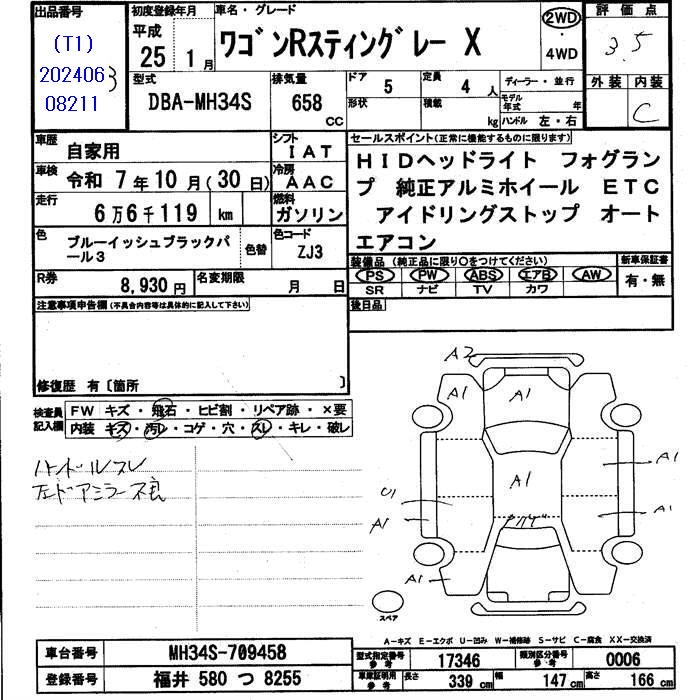 出品番号
(T1)
2024063
08211
初度登録年月
平成
25 1月
車名・グレード
ワゴンRスティングレー X
2WD
・
4WD
評価点
3.5
型式
DBA-MH34S
排気量
658 CC
ドア 5
形状
定員 4 人
積載 kg
ディーラー・並行
モデル年式 年
ハンドル 左・右
外装 内装
C
車歴 自家用
シフト IAT
車検 令和 7年10月(30日)
冷房 AAC
走行 6万6千119 km
燃料 ガソリン
色 ブルーイッシュブラックパール3
色替
色コード ZJ3
R券 8,930円
名変期限 月 日
セールスポイント(正常に機能するものに限ります)
HIDヘッドライト フォグラン
プ 純正アルミホイール ETC
アイドリングストップ オート
エアコン
装備品 (純正品に限り〇をつけてください)
新車保証書
PS PW ABS エアB AW
有・無
SR ナビ TV カワ
後日品
注意事項申告欄(不具合内容等は具体的に記入して下さい)
修復歴 有〔箇所 〕
検査員記入欄
FW キズ・飛石・ヒビ割・リペア跡・×要
内装 キズ・汚レ・コゲ・穴・スレ・キレ・破レ
ハンドルスレ
左ドアミラー不良
A2
A1
A1
A1
A1
U1
A1
A1
A1
スペア
A-キズ E-エクボ U-凹み W-補修跡 S-サビ C-腐食 XX-交換済
車台番号 MH34S-709458
型式指定番号 参考 17346
類別区分番号 参考 0006
登録番号 福井 580 つ 8255
車庫証明用 参考
長さ 339 cm
幅 147 cm
高さ 166 cm